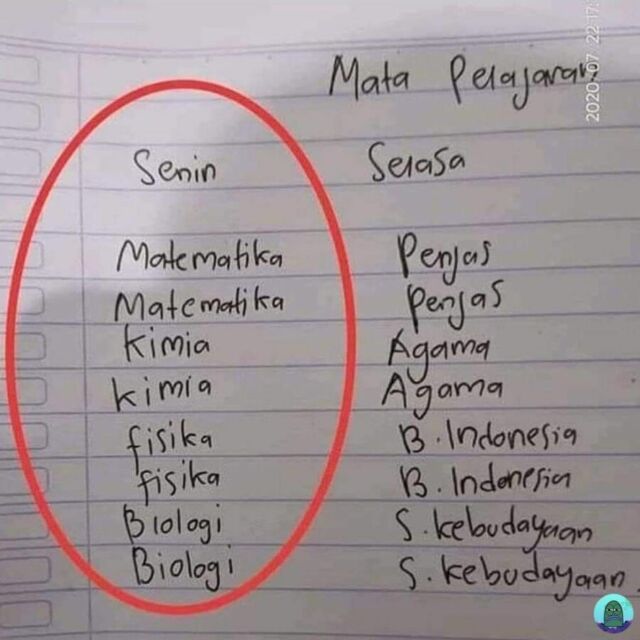 2020 07 22:17
Mata Pelajaran
Senin Selasa
Matematika Penjas
Matematika Penjas
Kimia Agama
Kimia Agama
fisika B. Indonesia
fisika B. Indonesia
Biologi S. kebudayaan
Biologi S. kebudayaan